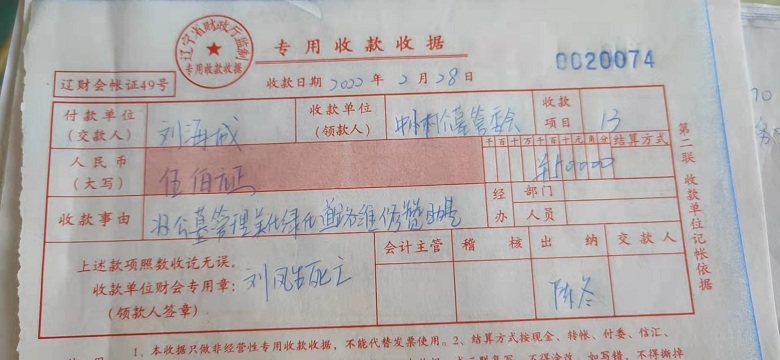 辽宁省财政厅监制
专用收款收据
专用收款收据
0020074
辽财会帐证49号
收款日期 2022 年 2 月 28 日
付款单位 刘海成 收款单位 公墓管委会 收款 13
(交款人) (领款人) 项目
人民币 伍佰元正 千百十万千百十元角分 结算方式
(大写) ¥50000
收款事由 公墓管理美化绿化道路维修赞助 经 部门
办 人员
上述款项照数收讫无误。 会计主管 稽核 出纳 交款人
收款单位财会专用章: 刘凤 死亡 陈冬
(领款人签章)
第二联 收款单位记帐依据
1、本收据只做非经营性专用收款收据,不能代替发票使用。2、结算方式按现金、转帐、付委、信汇、
不得涂改,如写错,不得撕掉